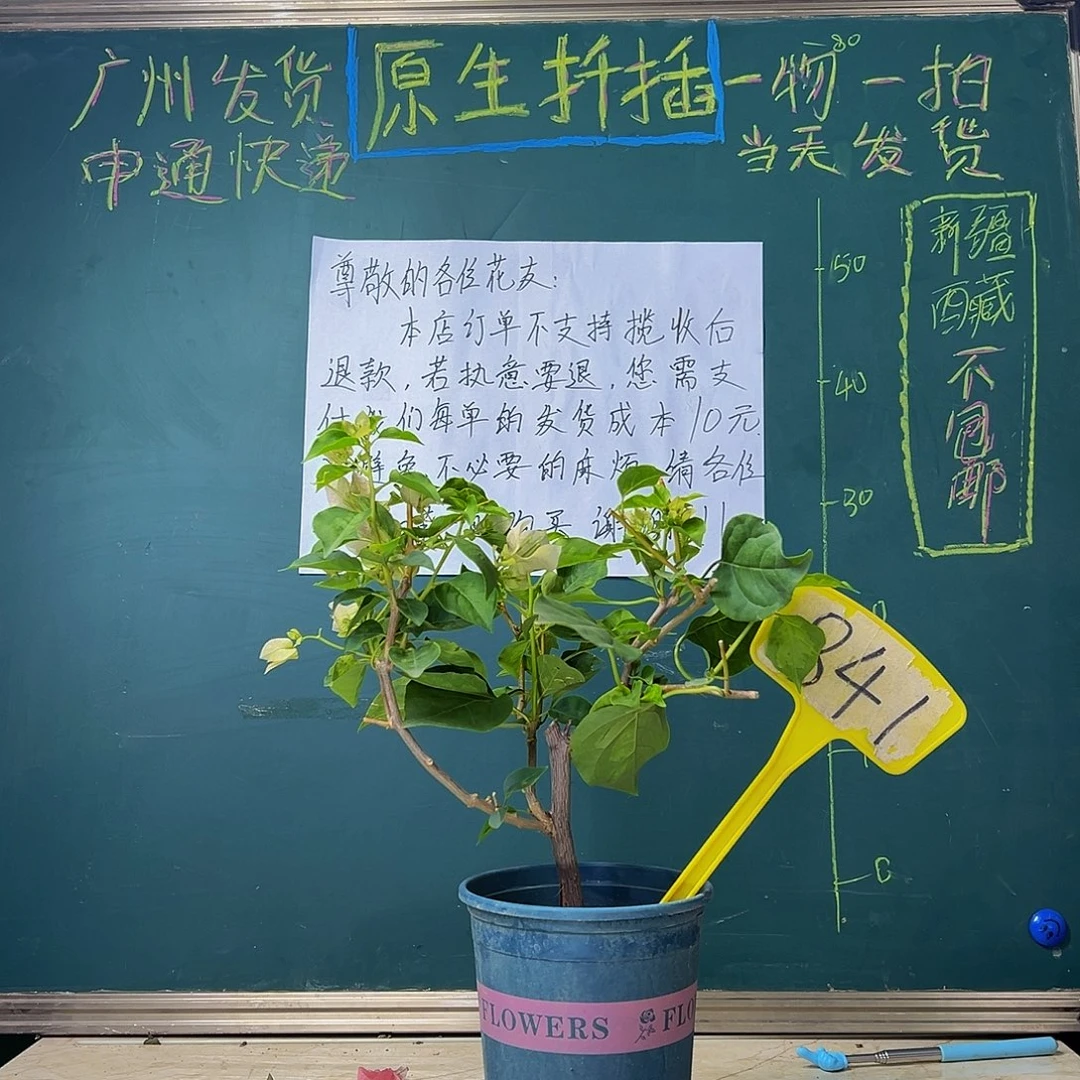 广州发货
申通快递
原生扦插
一物一拍
当天发货
80
新疆
西藏
不包邮
50
40
30
0
尊敬的各位花友:
本店订单不支持揽收后
退款,若执意要退,您需支
付我们每单的发货成本10元.
避免不必要的麻烦,请各位
购买 谢谢!!
841
FLOWERS
FLO